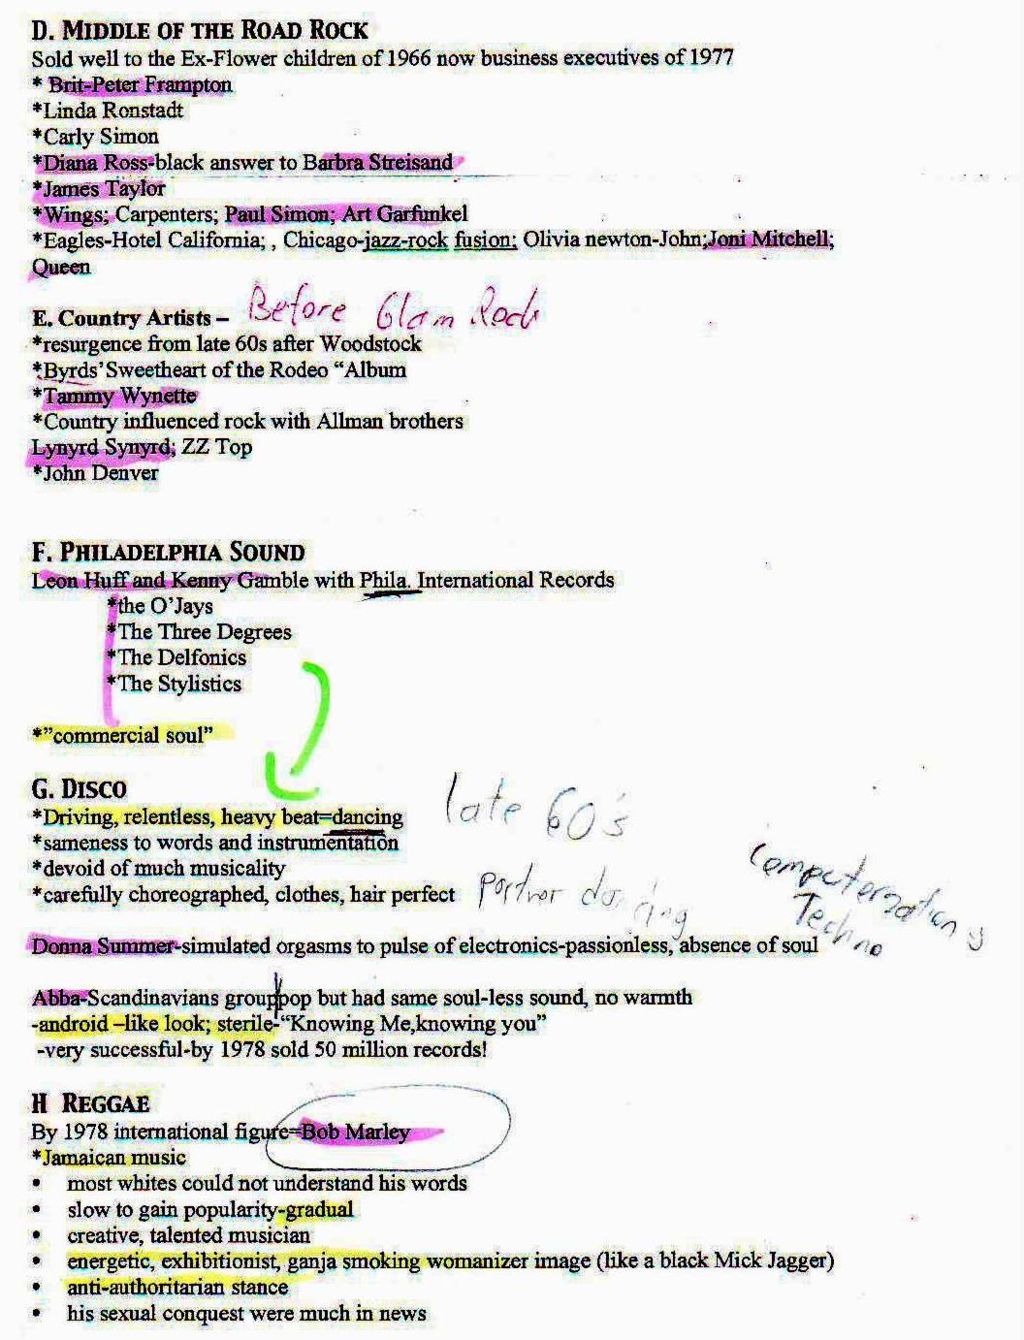 D. MIDDLE OF THE ROAD ROCK
Sold well to the Ex-Flower children of 1966 now business executives of 1977
* Brit-Peter Frampton
*Linda Ronstadt
*Carly Simon
*Diana Ross-black answer to Barbra Streisand
*James Taylor
*Wings; Carpenters; Paul Simon; Art Garfunkel
*Eagles-Hotel California; , Chicago-jazz-rock fusion; Olivia newton-John;Joni Mitchell;
Queen
E. Country Artists – Before Glam Rock
*resurgence from late 60s after Woodstock
*Byrds’Sweetheart of the Rodeo “Album
*Tammy Wynette
*Country influenced rock with Allman brothers
Lynyrd Synyrd; ZZ Top
*John Denver
F. PHILADELPHIA SOUND
Leon Huff and Kenny Gamble with Phila. International Records
*the O’Jays
*The Three Degrees
*The Delfonics
*The Stylistics
*”commercial soul”
G. DISCO
*Driving, relentless, heavy beat=dancing late 60's
*sameness to words and instrumentation
*devoid of much musicality
*carefully choreographed, clothes, hair perfect Partner dancing
Computerzation &
Techno
Donna Summer-simulated orgasms to pulse of electronics-passionless, absence of soul
Abba-Scandinavians group pop but had same soul-less sound, no warmth
-android –like look; sterile-“Knowing Me,knowing you”
-very successful-by 1978 sold 50 million records!
H REGGAE
By 1978 international figure=Bob Marley
*Jamaican music
• most whites could not understand his words
• slow to gain popularity-gradual
• creative, talented musician
• energetic, exhibitionist, ganja smoking womanizer image (like a black Mick Jagger)
• anti-authoritarian stance
• his sexual conquest were much in news